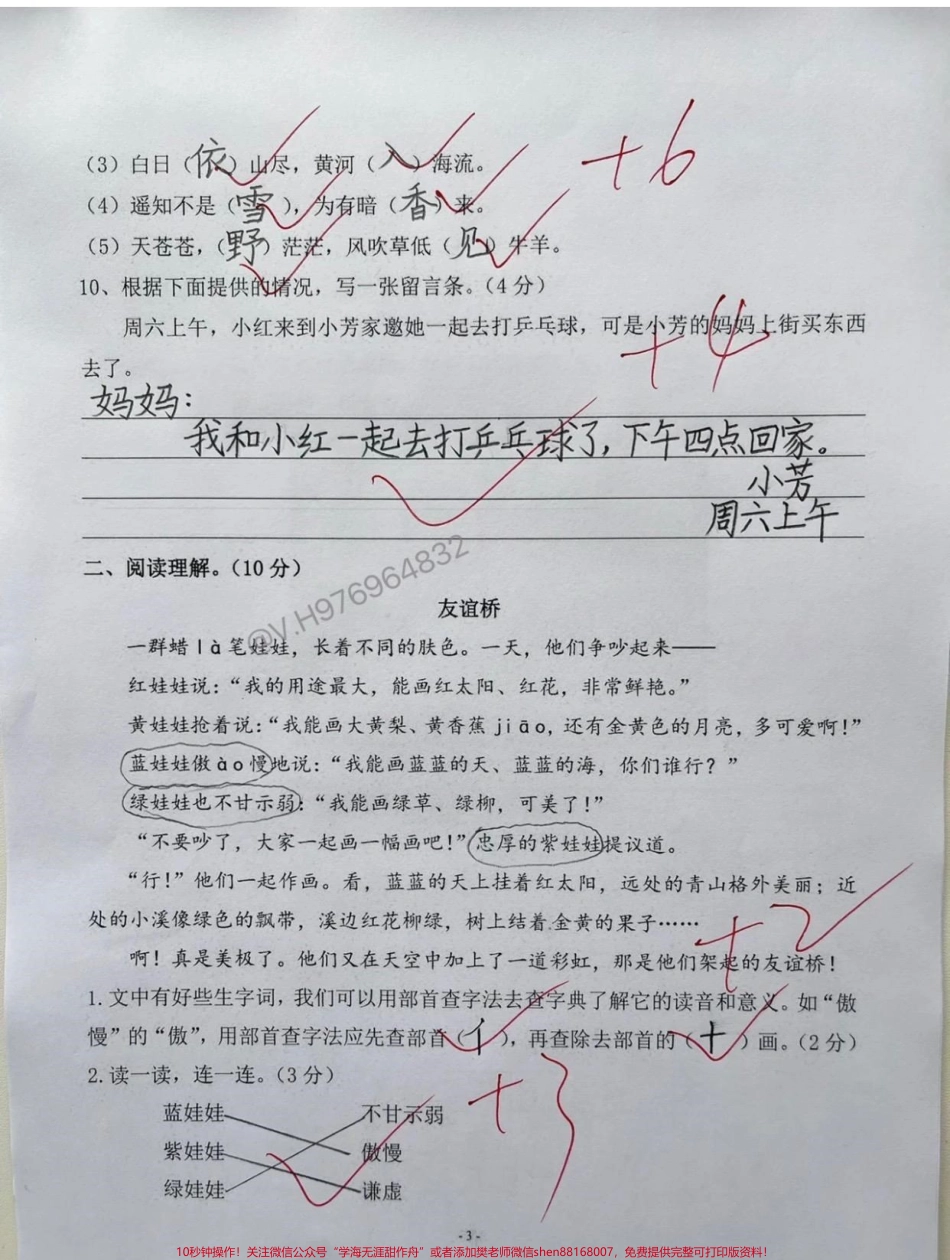 （3）白日（依）山尽，黄河（入）海流。
+6
（4）遥知不是（雪），为有暗（香）来。
（5）天苍苍，（野）茫茫，风吹草低（见）牛羊。
10、根据下面提供的情况，写一张留言条。（4分）
周六上午，小红来到小芳家邀她一起去打乒乓球，可是小芳的妈妈上街买东西
去了。
+4
妈妈：
我和小红一起去打乒乓球了，下午四点回家。
小芳
周六上午
@V.H976964832
二、阅读理解。（10分）
友谊桥
一群蜡là笔娃娃，长着不同的肤色。一天，他们争吵起来——
红娃娃说：“我的用途最大，能画红太阳、红花，非常鲜艳。”
黄娃娃抢着说：“我能画大黄梨、黄香蕉jiāo，还有金黄色的月亮，多可爱啊！”
蓝娃娃傲ào慢地说：“我能画蓝蓝的天、蓝蓝的海，你们谁行？”
绿娃娃也不甘示弱：“我能画绿草、绿柳，可美了！”
“不要吵了，大家一起画一幅画吧！”忠厚的紫娃娃提议道。
“行！”他们一起作画。看，蓝蓝的天上挂着红太阳，远处的青山格外美丽；近
处的小溪像绿色的飘带，溪边红花柳绿，树上结着金黄的果子……
+2
啊！真是美极了。他们又在天空中加上了一道彩虹，那是他们架起的友谊桥！
1.文中有好些生字词，我们可以用部首查字法去查字典了解它的读音和意义。如“傲
慢”的“傲”，用部首查字法应先查部首（亻），再查除去部首的（十）画。（2分）
2.读一读，连一连。（3分）
+3
蓝娃娃 不甘示弱
紫娃娃 傲慢
绿娃娃 谦虚
- 3 -
10秒钟操作！关注微信公众号“学海无涯甜作舟”或者添加樊老师微信shen88168007，免费提供完整可打印版资料！